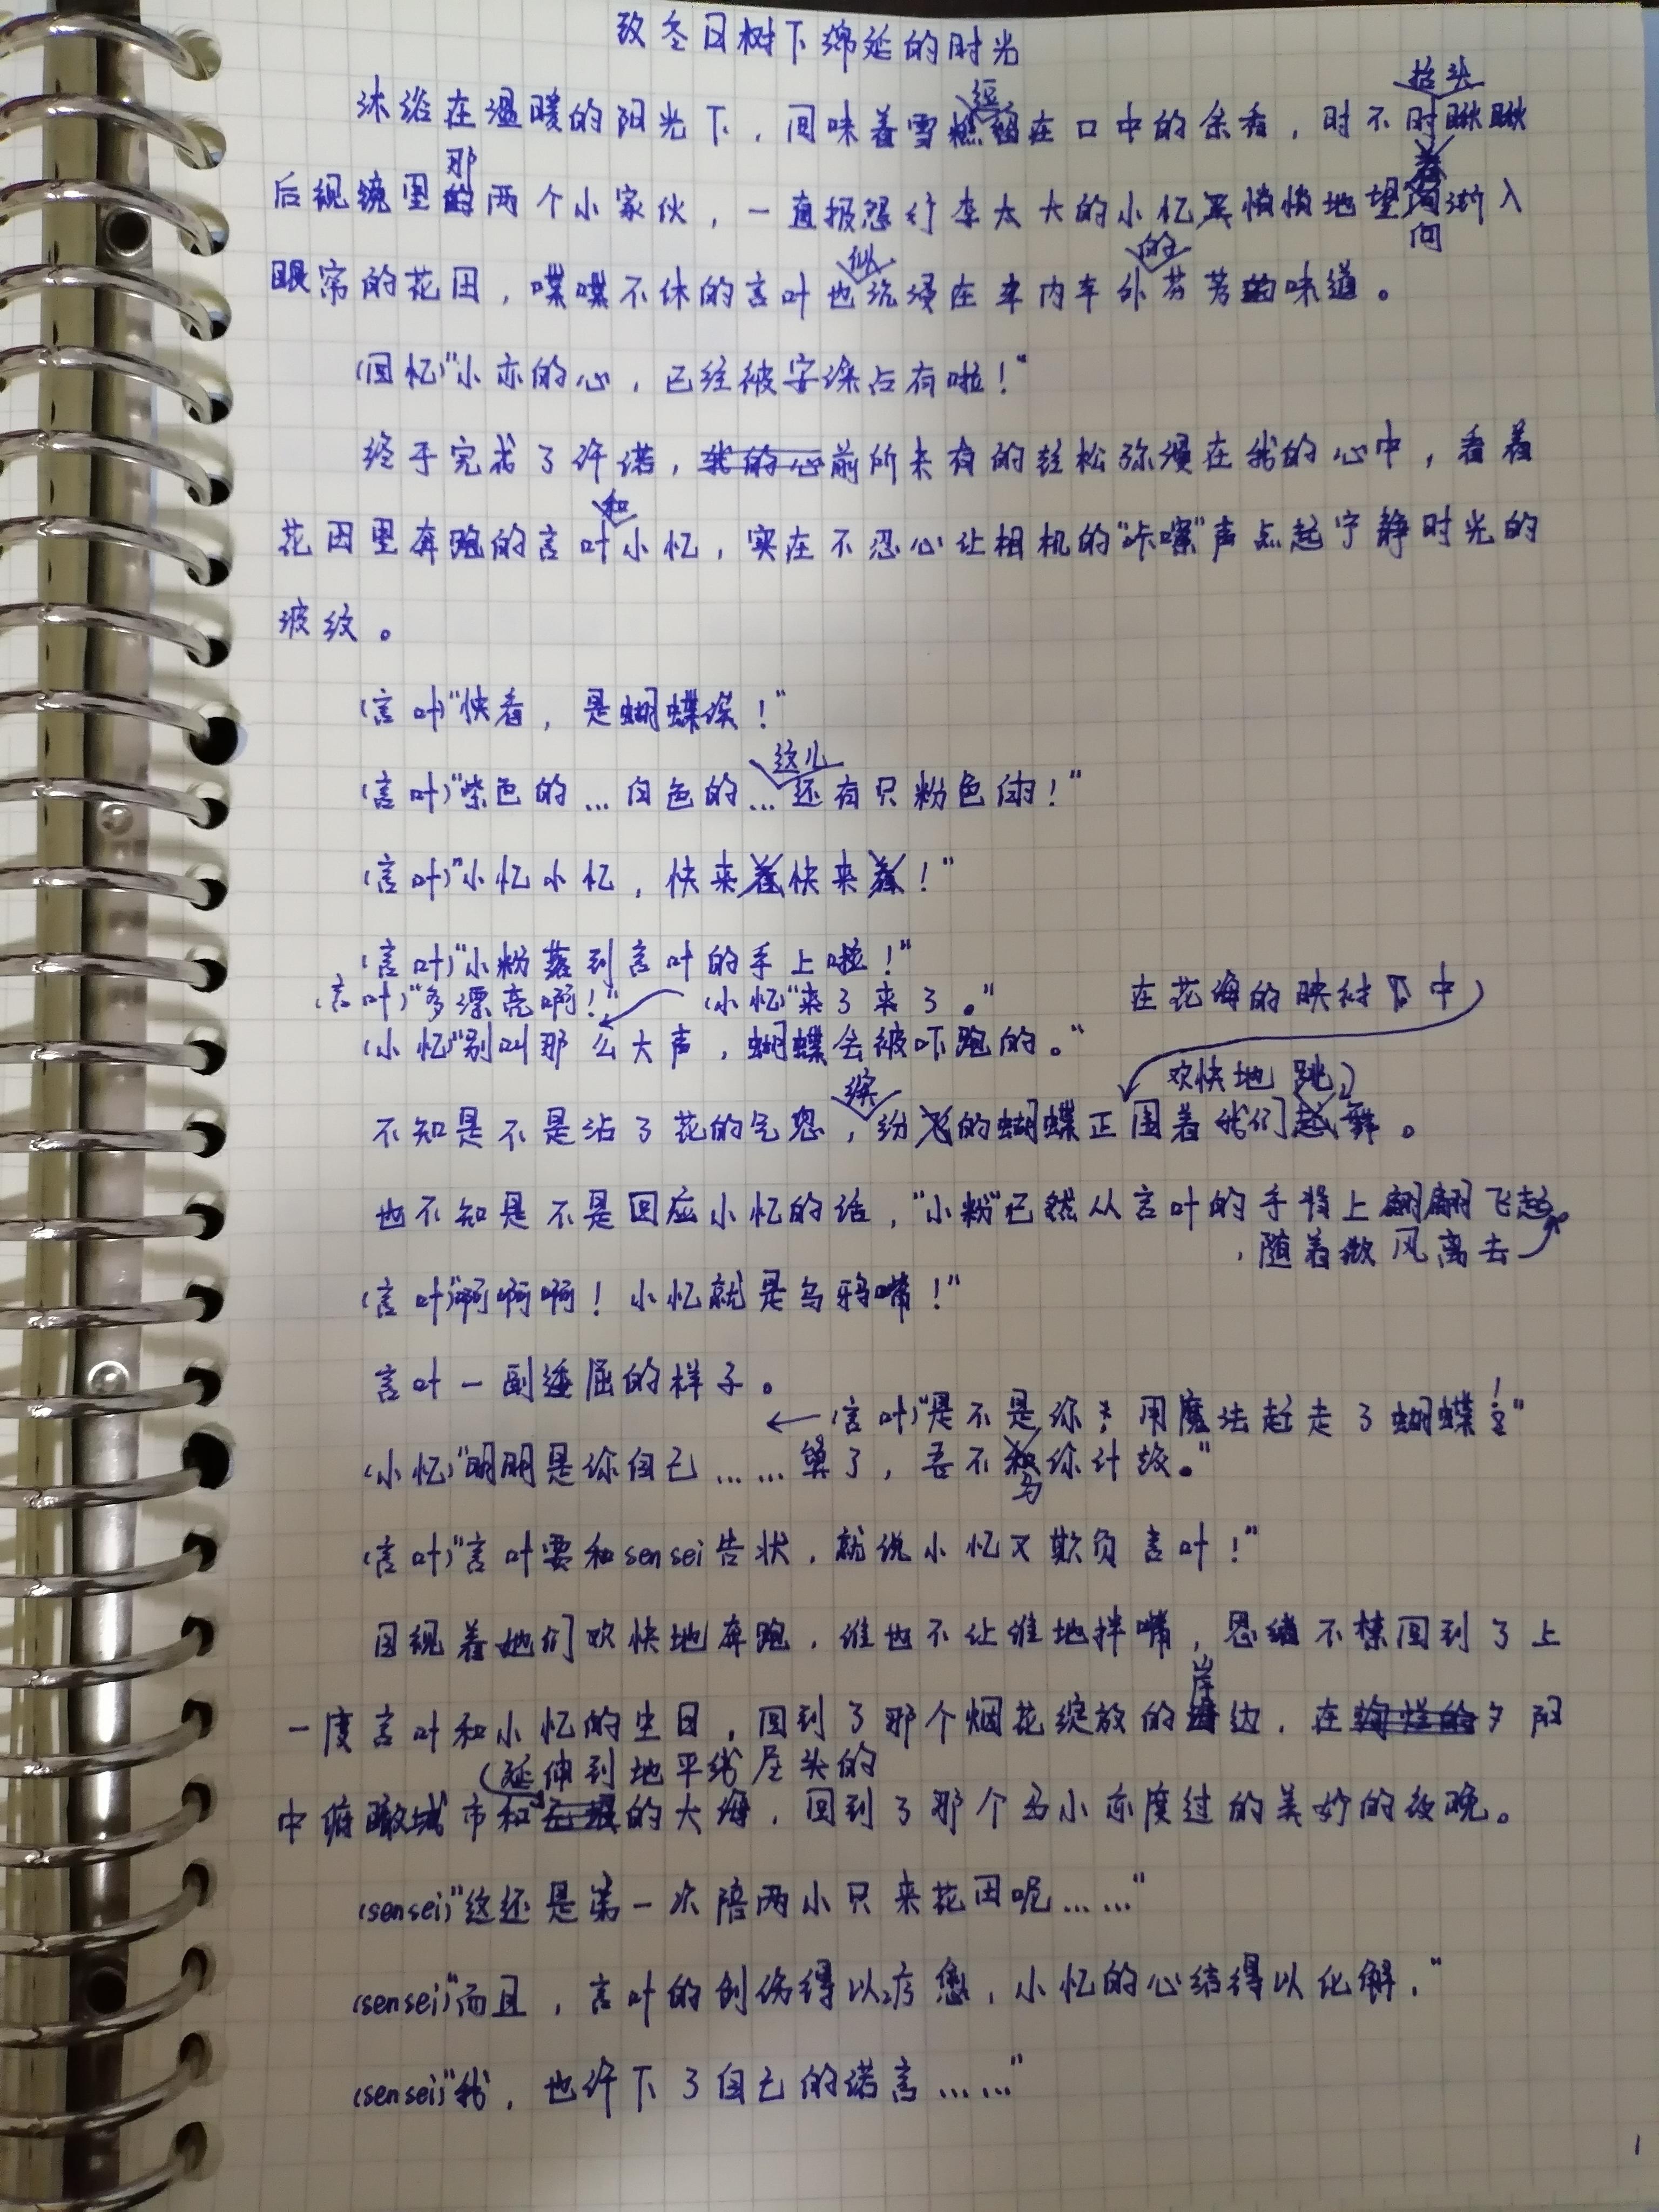 致冬日树下绵延的时光
沐浴在温暖的阳光下，回味着雪糕逗留在口中的余香，时不时抬头瞅瞅
后视镜里那两个小家伙，一直报怨行李太大的小忆悄悄地望向渐入
眼帘的花田，喋喋不休的言叶也似沉浸在车内车外的芬芳味道。
(回忆)"小亦的心，已经被安涂占有啦！"
终于完成了许诺，前所未有的轻松弥漫在我的心中，看着
花田里奔跑的言叶和小忆，实在不忍心让相机的"咔嚓"声点起宁静时光的
波纹。
(言叶)"快看，是蝴蝶诶！"
(言叶)"紫色的…白色的…这儿还有只粉色的！"
(言叶)"小忆小忆，快来快来！"
(言叶)"小粉落到言叶的手上啦！"
(言叶)"多漂亮啊！" (小忆)"来了来了。"
(小忆)"别叫那么大声，蝴蝶会被吓跑的。"
不知是不是沾了花的气息，缤纷的蝴蝶正在花海的映衬中围着我们欢快地跳舞。
也不知是不是回应小忆的话，"小粉"已然从言叶的手指上翩翩飞起，随着微风离去。
(言叶)"啊啊啊！小忆就是乌鸦嘴！"
言叶一副委屈的样子。
(言叶)"是不是你，用魔法赶走了蝴蝶！"
(小忆)"明明是你自己……算了，吾不与你计较。"
(言叶)"言叶要和sensei告状，就说小忆又欺负言叶！"
目视着她们欢快地奔跑，谁也不让谁地拌嘴，思绪不禁回到了上
一度言叶和小忆的生日，回到了那个烟花绽放的岸边，在夕阳
中俯瞰城市和延伸到地平线尽头的大海，回到了那个与小亦度过的美妙的夜晚。
(sensei)"这还是第一次陪两小只来花田呢……"
(sensei)"而且，言叶的创伤得以疗愈，小忆的心结得以化解，"
(sensei)"我，也许下了自己的诺言……"
1